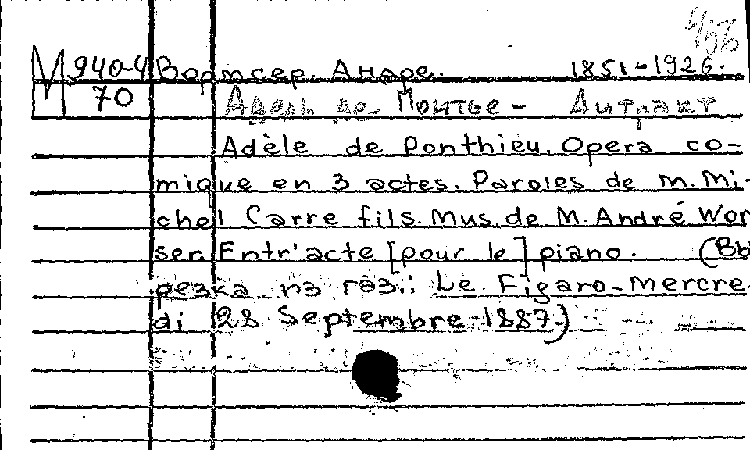 М 940-4 Вормсер, Андре. 1851-1926.
70 Адель де Понтье - Антракт
Adèle de Ponthieu. Opera co-
mique en 3 actes. Paroles de M. Mi-
chel Carre fils. Mus. de M. André Wor
ser. Entr'acte [pour le] piano. (Вы
резка из газ.: Le Figaro-Mercre
di 28 Septembre-1887.)